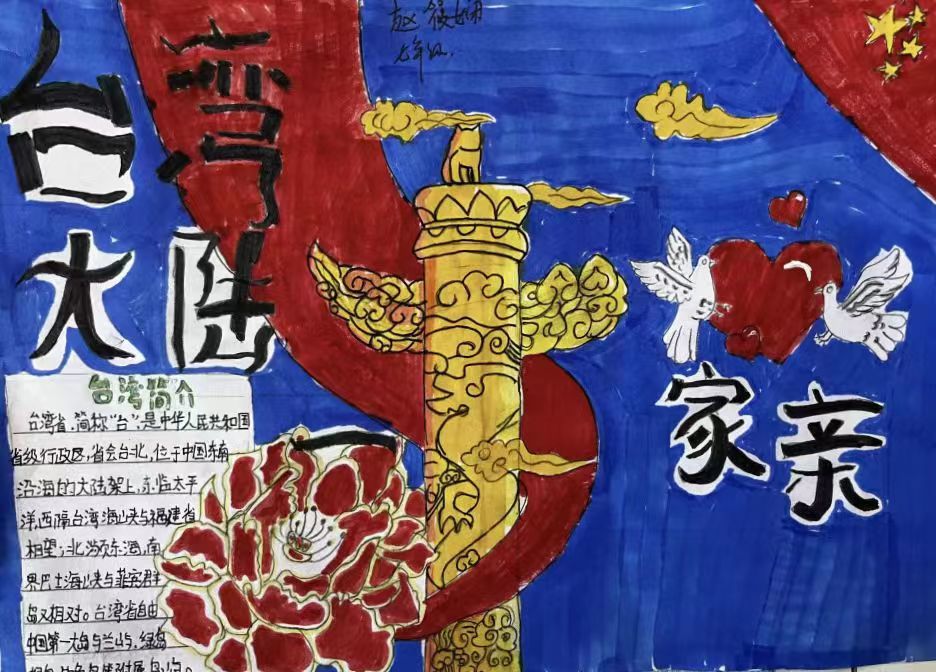 赵筱娴
七年级.
台湾
大陆
家亲
台湾简介
台湾省,简称“台”,是中华人民共和国
省级行政区,省会台北,位于中国东南
沿海的大陆架上,东临太平
洋,西隔台湾海峡与福建省
相望;北濒东海,南
界巴士海峡与菲宾群
岛又相对。台湾省自由
中国第一大岛与兰屿、绿岛